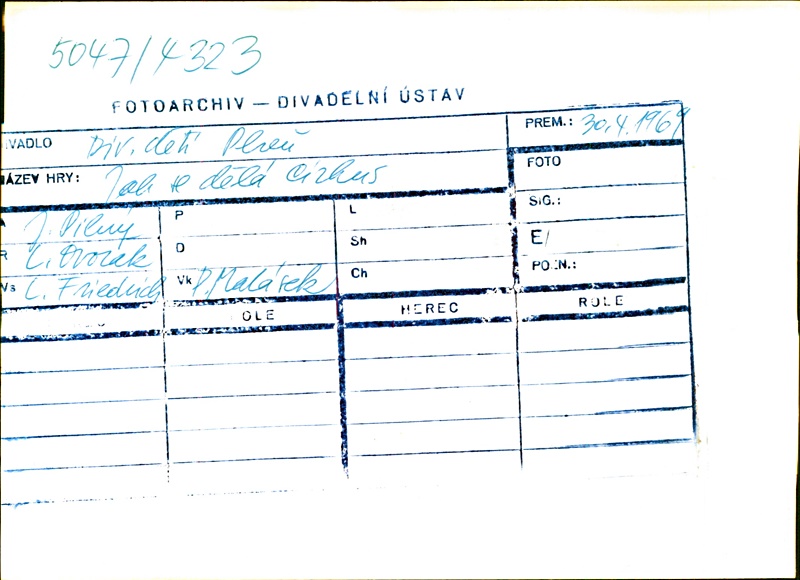 5047/4323
FOTOARCHIV — DIVADELNÍ ÚSTAV
IVADLO Div. dětí Plzeň PREM.: 30.4.1969
NÁZEV HRY: Jak se dělá cirkus FOTO
A J. Pilný P L SIG.:
R L. Dvořák D Sh E/
Vs L. Friedrich Vk P. Malásek Ch POZN.:
OLE HEREC ROLE